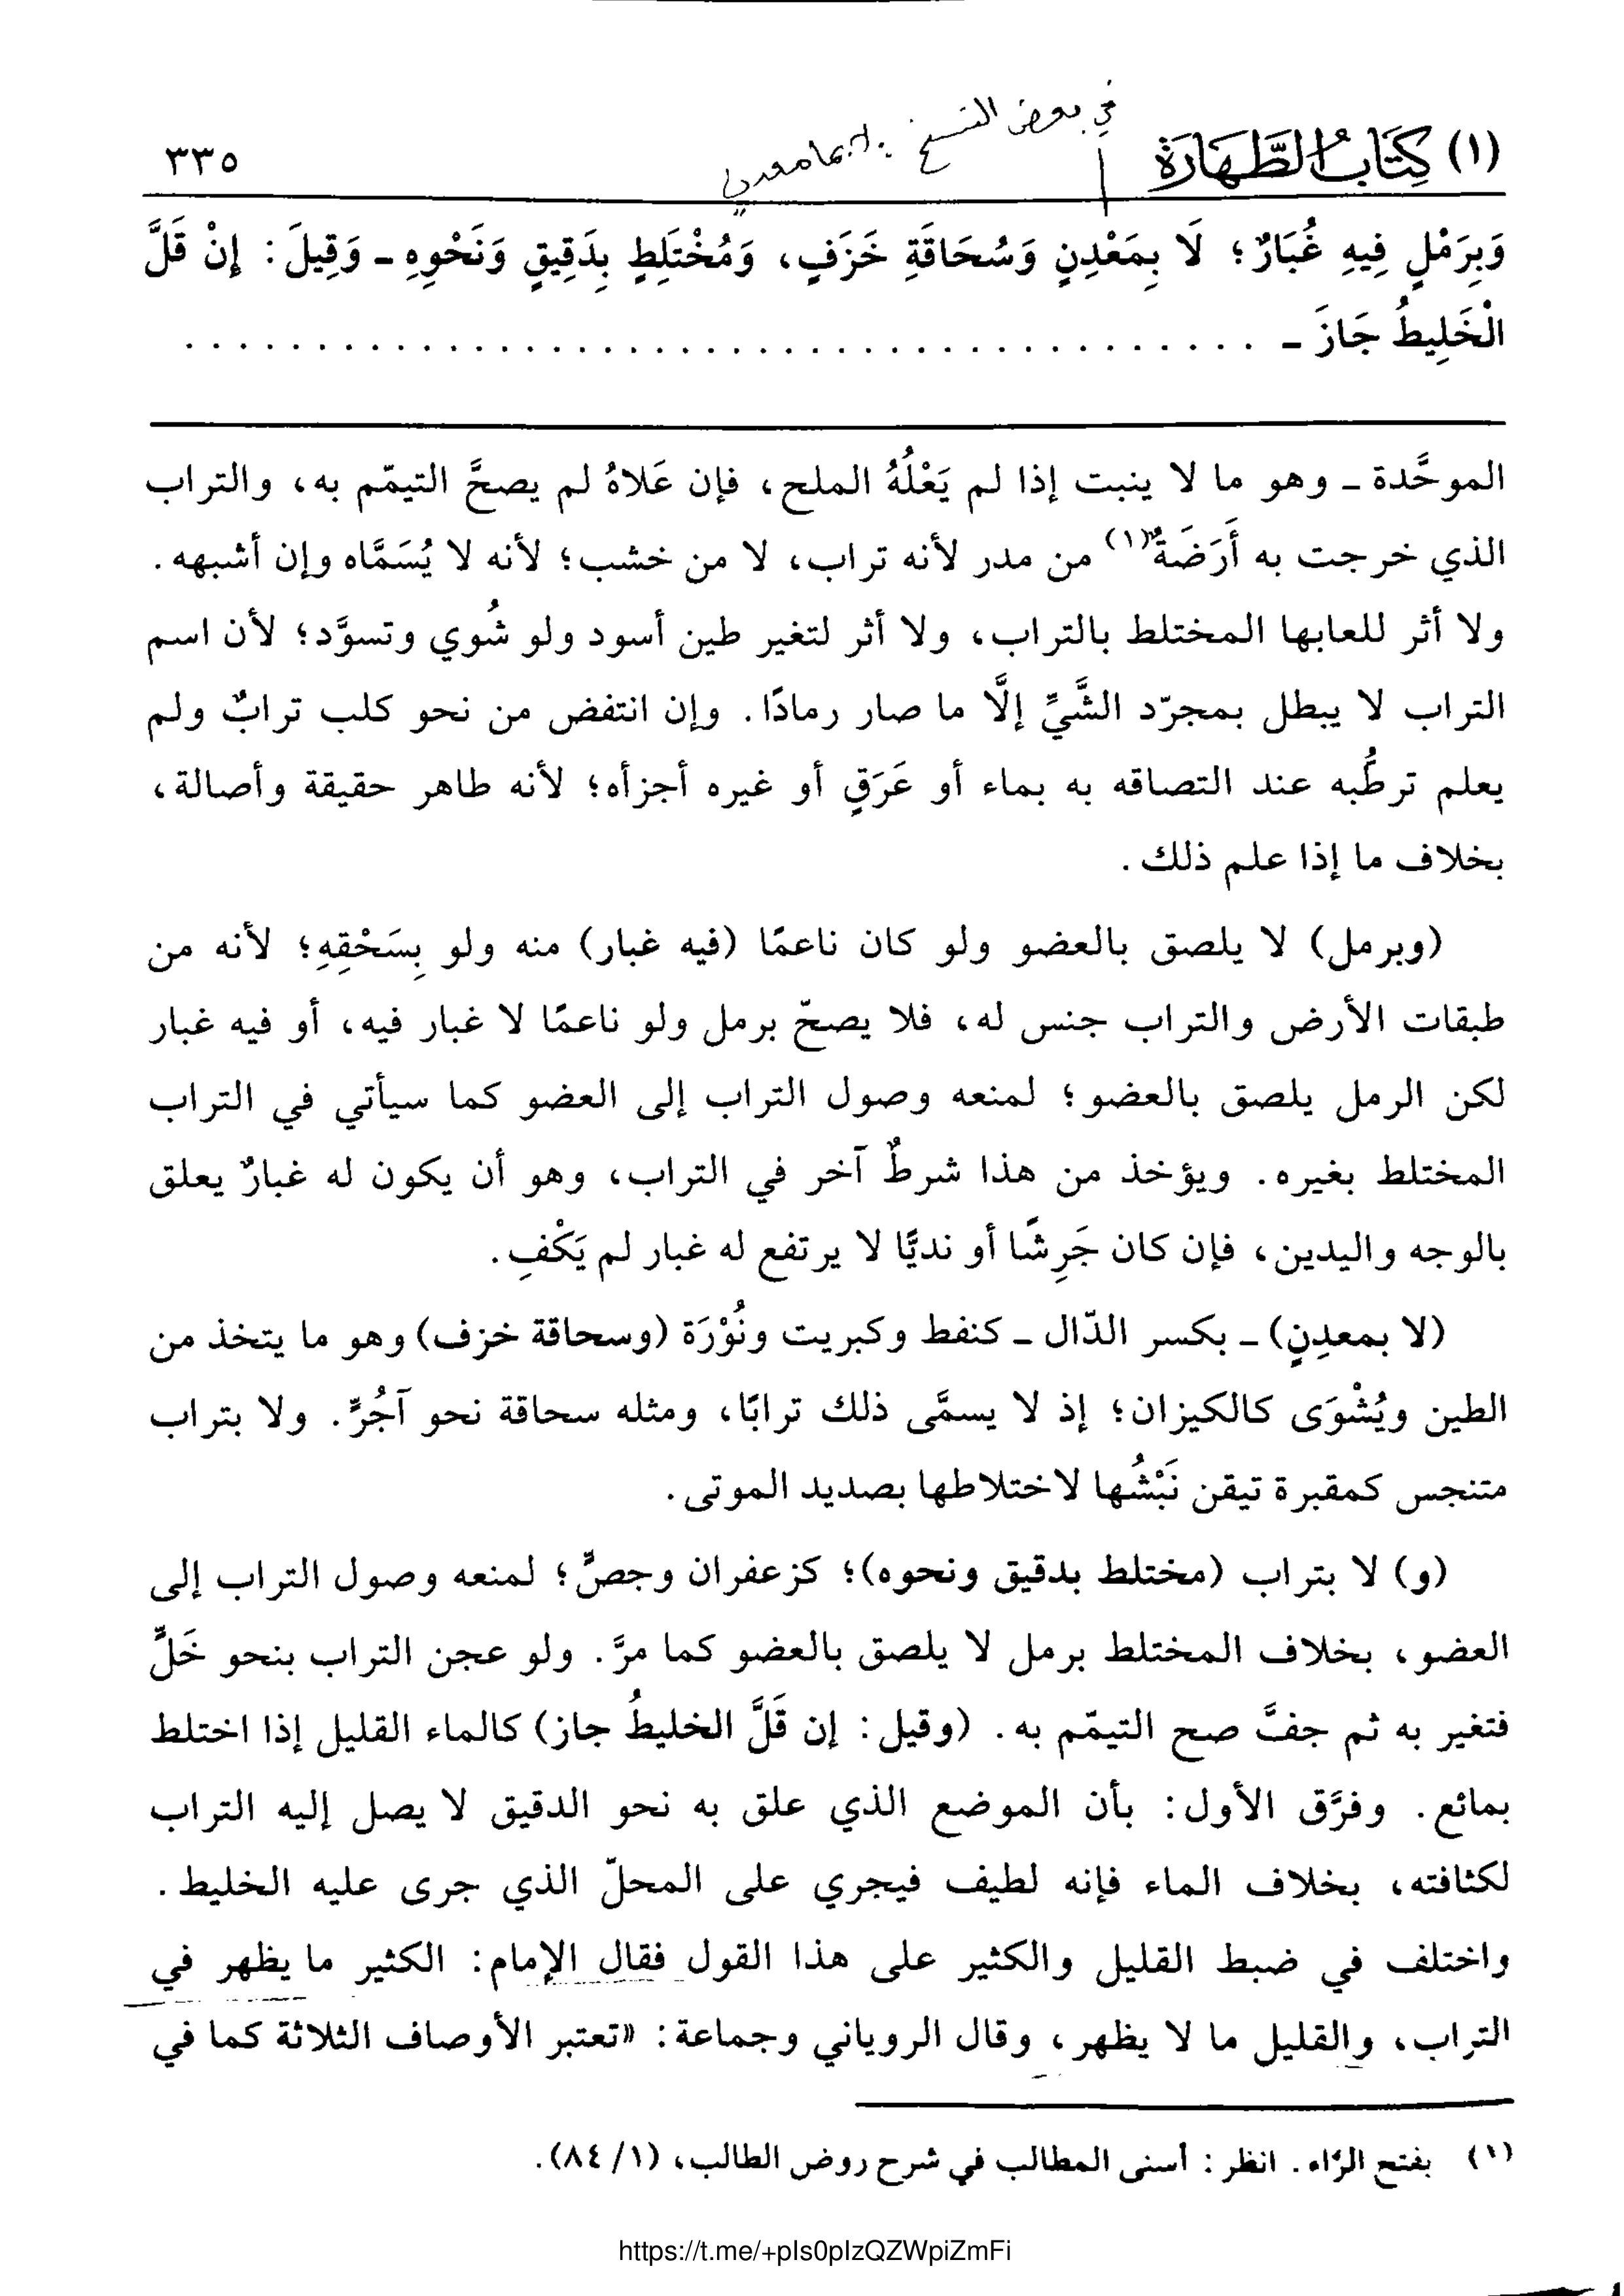 (١) كِتَابُ الطَّهَارَةِ
في بعض النسخ
٣٣٥
وَبِرَمْلٍ فِيهِ غُبَارٌ؛ لَا بِمَعْدِنٍ وَسُحَاقَةِ خَزَفٍ، وَمُخْتَلِطٍ بِدَقِيقٍ وَنَحْوِهِ ـ وَقِيلَ: إِنْ قَلَّ
الْخَلِيطُ جَازَ ـ . . . . . . . . . . . . . . . . . . . . . . . . . . . . . . . . . . . . . . . . .
الموحَّدة ـ وهو ما لا ينبت إذا لم يَعْلُهُ الملح، فإن عَلاهُ لم يصحَّ التيمّم به، والتراب
الذي خرجت به أَرَضَةٌ(١) من مدر لأنه تراب، لا من خشب؛ لأنه لا يُسَمَّاه وإن أشبهه.
ولا أثر للعابها المختلط بالتراب، ولا أثر لتغير طين أسود ولو شُوي وتسوَّد؛ لأن اسم
التراب لا يبطل بمجرّد الشَّيِّ إلَّا ما صار رمادًا. وإن انتفض من نحو كلب ترابٌ ولم
يعلم ترطُّبه عند التصاقه به بماء أو عَرَقٍ أو غيره أجزأه؛ لأنه طاهر حقيقة وأصالة،
بخلاف ما إذا علم ذلك.
(وبرمل) لا يلصق بالعضو ولو كان ناعمًا (فيه غبار) منه ولو بِسَحْقِهِ؛ لأنه من
طبقات الأرض والتراب جنس له، فلا يصحّ برمل ولو ناعمًا لا غبار فيه، أو فيه غبار
لكن الرمل يلصق بالعضو؛ لمنعه وصول التراب إلى العضو كما سيأتي في التراب
المختلط بغيره. ويؤخذ من هذا شرطٌ آخر في التراب، وهو أن يكون له غبارٌ يعلق
بالوجه واليدين، فإن كان جَرِشًا أو نديًّا لا يرتفع له غبار لم يَكْفِ.
(لا بمعدِنٍ) ـ بكسر الدّال ـ كنفط وكبريت ونُوْرَة (وسحاقة خزف) وهو ما يتخذ من
الطين ويُشْوَى كالكيزان؛ إذ لا يسمَّى ذلك ترابًا، ومثله سحاقة نحو آجُرٍّ. ولا بتراب
متنجس كمقبرة تيقن نَبْشُها لاختلاطها بصديد الموتى.
(و) لا بتراب (مختلط بدقيق ونحوه)؛ كزعفران وجصٍّ؛ لمنعه وصول التراب إلى
العضو، بخلاف المختلط برمل لا يلصق بالعضو كما مرَّ. ولو عجن التراب بنحو خَلٍّ
فتغير به ثم جفَّ صح التيمّم به. (وقيل: إن قَلَّ الخليطُ جاز) كالماء القليل إذا اختلط
بمائع. وفرَّق الأول: بأن الموضع الذي علق به نحو الدقيق لا يصل إليه التراب
لكثافته، بخلاف الماء فإنه لطيف فيجري على المحلّ الذي جرى عليه الخليط.
واختلف في ضبط القليل والكثير على هذا القول فقال الإمام: الكثير ما يظهر في
التراب، والقليل ما لا يظهر، وقال الروياني وجماعة: «تعتبر الأوصاف الثلاثة كما في
(١) بفتح الرّاء. انظر: أسنى المطالب في شرح روض الطالب، (١/ ٨٤).
https://t.me/+pIs0pIzQZWpiZmFi